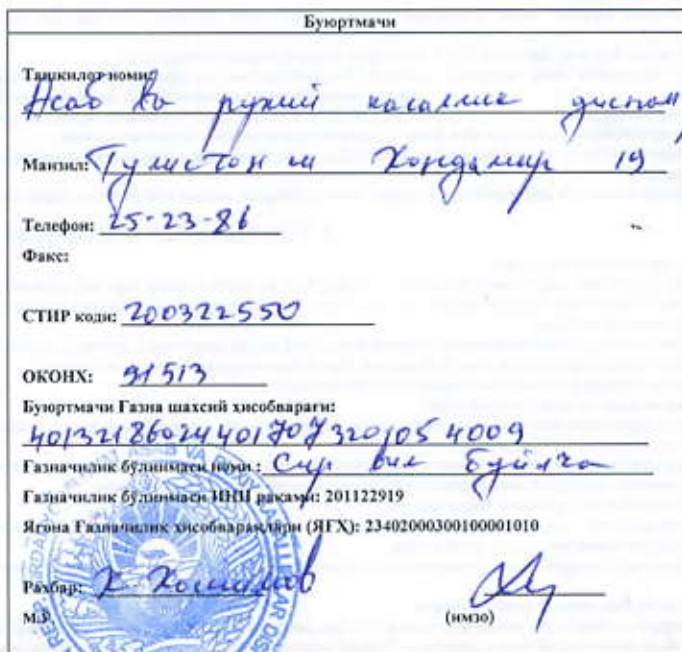 Буюртмачи
Ташкилот номи:
Асаб ва рухий касаллик диспан
Манзил: Гулистон ш Хондамир 19
Телефон: 25-23-86
Факс:
СТИР коди: 200322550
ОКОНХ: 91513
Буюртмачи Ғазна шахсий ҳисобварағи:
401321860244017073201054009
Ғазначилик бўлинмаси номи: Сир вил бўйича
Ғазначилик бўлинмаси ИНН рақами: 201122919
Ягона Ғазначилик ҳисобварақлари (ЯҒХ): 23402000300100001010
Раҳбар: Х. Хошимов
М.Ў. (имзо)